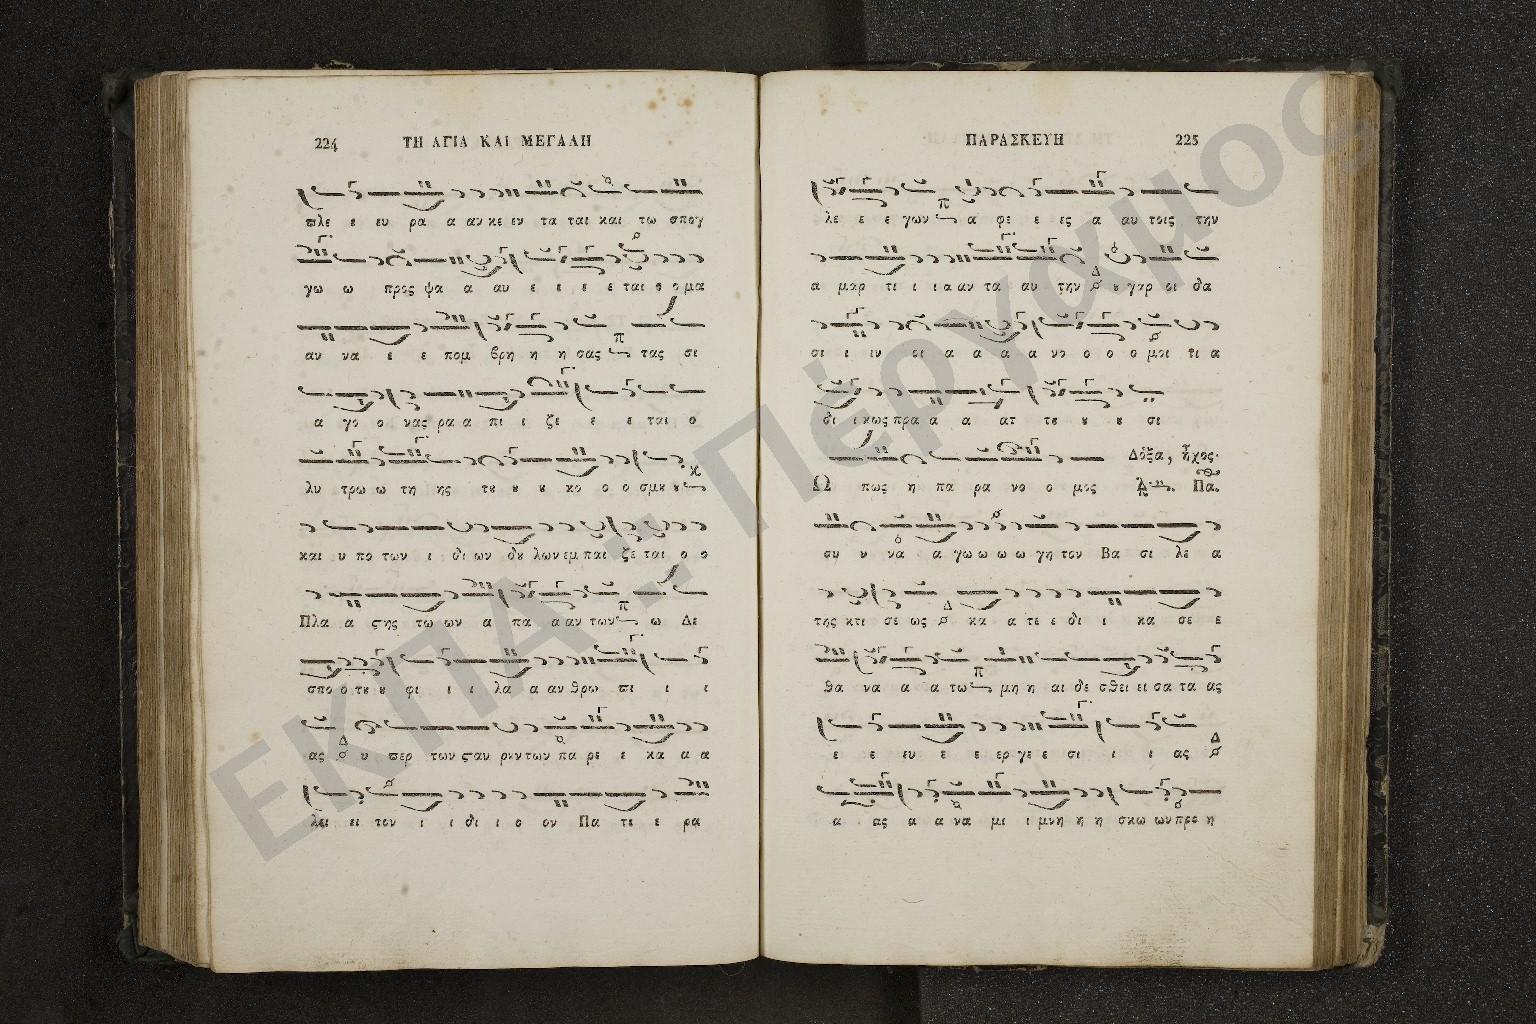 224 ΤΗ ΑΓΙΑ ΚΑΙ ΜΕΓΑΛΗ
πλε ε ευ ρα α αν κε εν τα ται και τω σπογ
γω ω προς ψα α αυ ε ε ε ε ται ο ο μα
αν να ε ε πομ βρη η η σας π τας σι
α γο ο νας ρα α πι ι ζε ε ε ται ο
λυ τρω ω τη ης του ου ου κο ο ο σμου ου
και υ πο των ι δι ων δου λων εμ παι ζε ται ο ο
Πλα α στης τω ων α πα α αν των π ω Δε
σπο ο του ου φι ι ι λα α αν θρω πι ι ι
ας Δ υ περ των σταυ ρουν των πα ρε ε κα α α
λει ει τον ι ι δι ι ο ον Πα τε ε ρα
ΠΑΡΑΣΚΕΥΗ 225
λε ε ε γων π α φε ε ες α αυ τοις την
α μαρ τι ι ι α αν τα αυ την Δ ου γαρ οι δα
σι ι ιν οι α α α α νο ο ο ο μοι τι α
δι ι κως πρα α α ατ του ου ου σι
Δόξα, ἦχος
Ω πως η πα ρα νο ο μος Πα.
συ υ να α γω ω ω ω γη τον Βα σι λε α
της κτι σε ως Δ κα α τε ε δι ι κα σε ε
θα να α α τω π μη η αι δε σθει ει σα τα ας
ε ε ευ ε ε ερ γε ε σι ι ι ας Δ
α ας α α να μι ι μνη η η σκω ων προ η
ΕΚΠΑ :: Πέργαμος